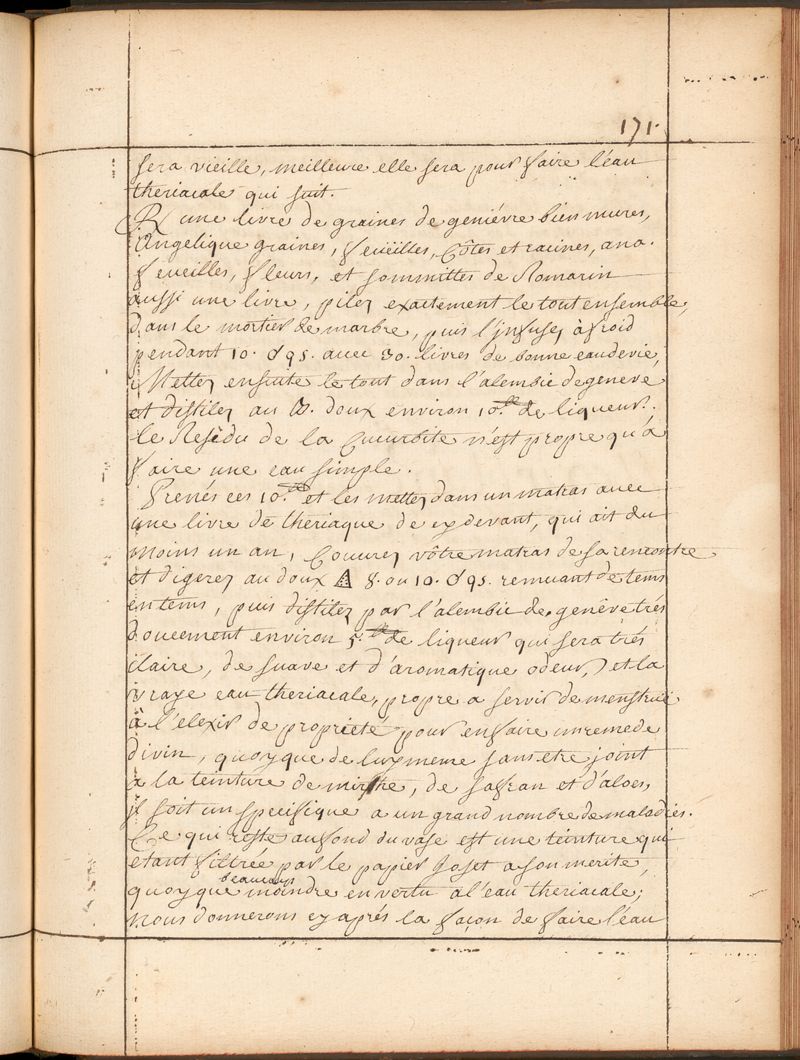 171.
sera vieille, meilleure elle sera pour faire l'éau
theriacale qui suit.
℞ une livre de graines de geniévre bien mures,
Angelique graines, feueilles, Côtes et racines, ana.
feueilles, fleurs, et sommittes de Romarin
aussi une livre, pilez exactement le tout ensemble,
dans le mortier de marbre, puis l'jnfusez à froid
pendant 10. auec 30. livres de bonne eau devie,
Mettez ensuite le tout dans l'alembic de geneve
et distilez au doux environ 10. de liqueur.
le Residu de la Cucurbite n'est propre qu'à
faire une eau simple.
Prenés ces 10. et les mettez dans un matras auec
une livre de theriaque de cy devant, qui ait du
moins un an, Couurez vôtre matras de sa rencontre
et digerez au doux 🜂 8. ou 10. remuant de tems
en tems, puis distilez par l'alembic de genêve trés
doucement environ 5. de liqueur qui sera trés
claire, de suave et d'aromatique odeur, et la
vraye eau theriacale, propre a servir de menstruë
à l'elexir de proprieté pour en faire un remede
divin, quoyque de luy meme sans etre joint
a la teinture de mirrhe, de saffran et d'aloes,
jl soit un specifique a un grand nombre de maladies.
Ce qui reste au fond du vase est une teinture qui
etant filtrée par le papier Joset a son merite,
quoyque beaucoup moindre en vertu a l'eau theriacale;
nous donnerons cy aprés la façon de faire l'éau